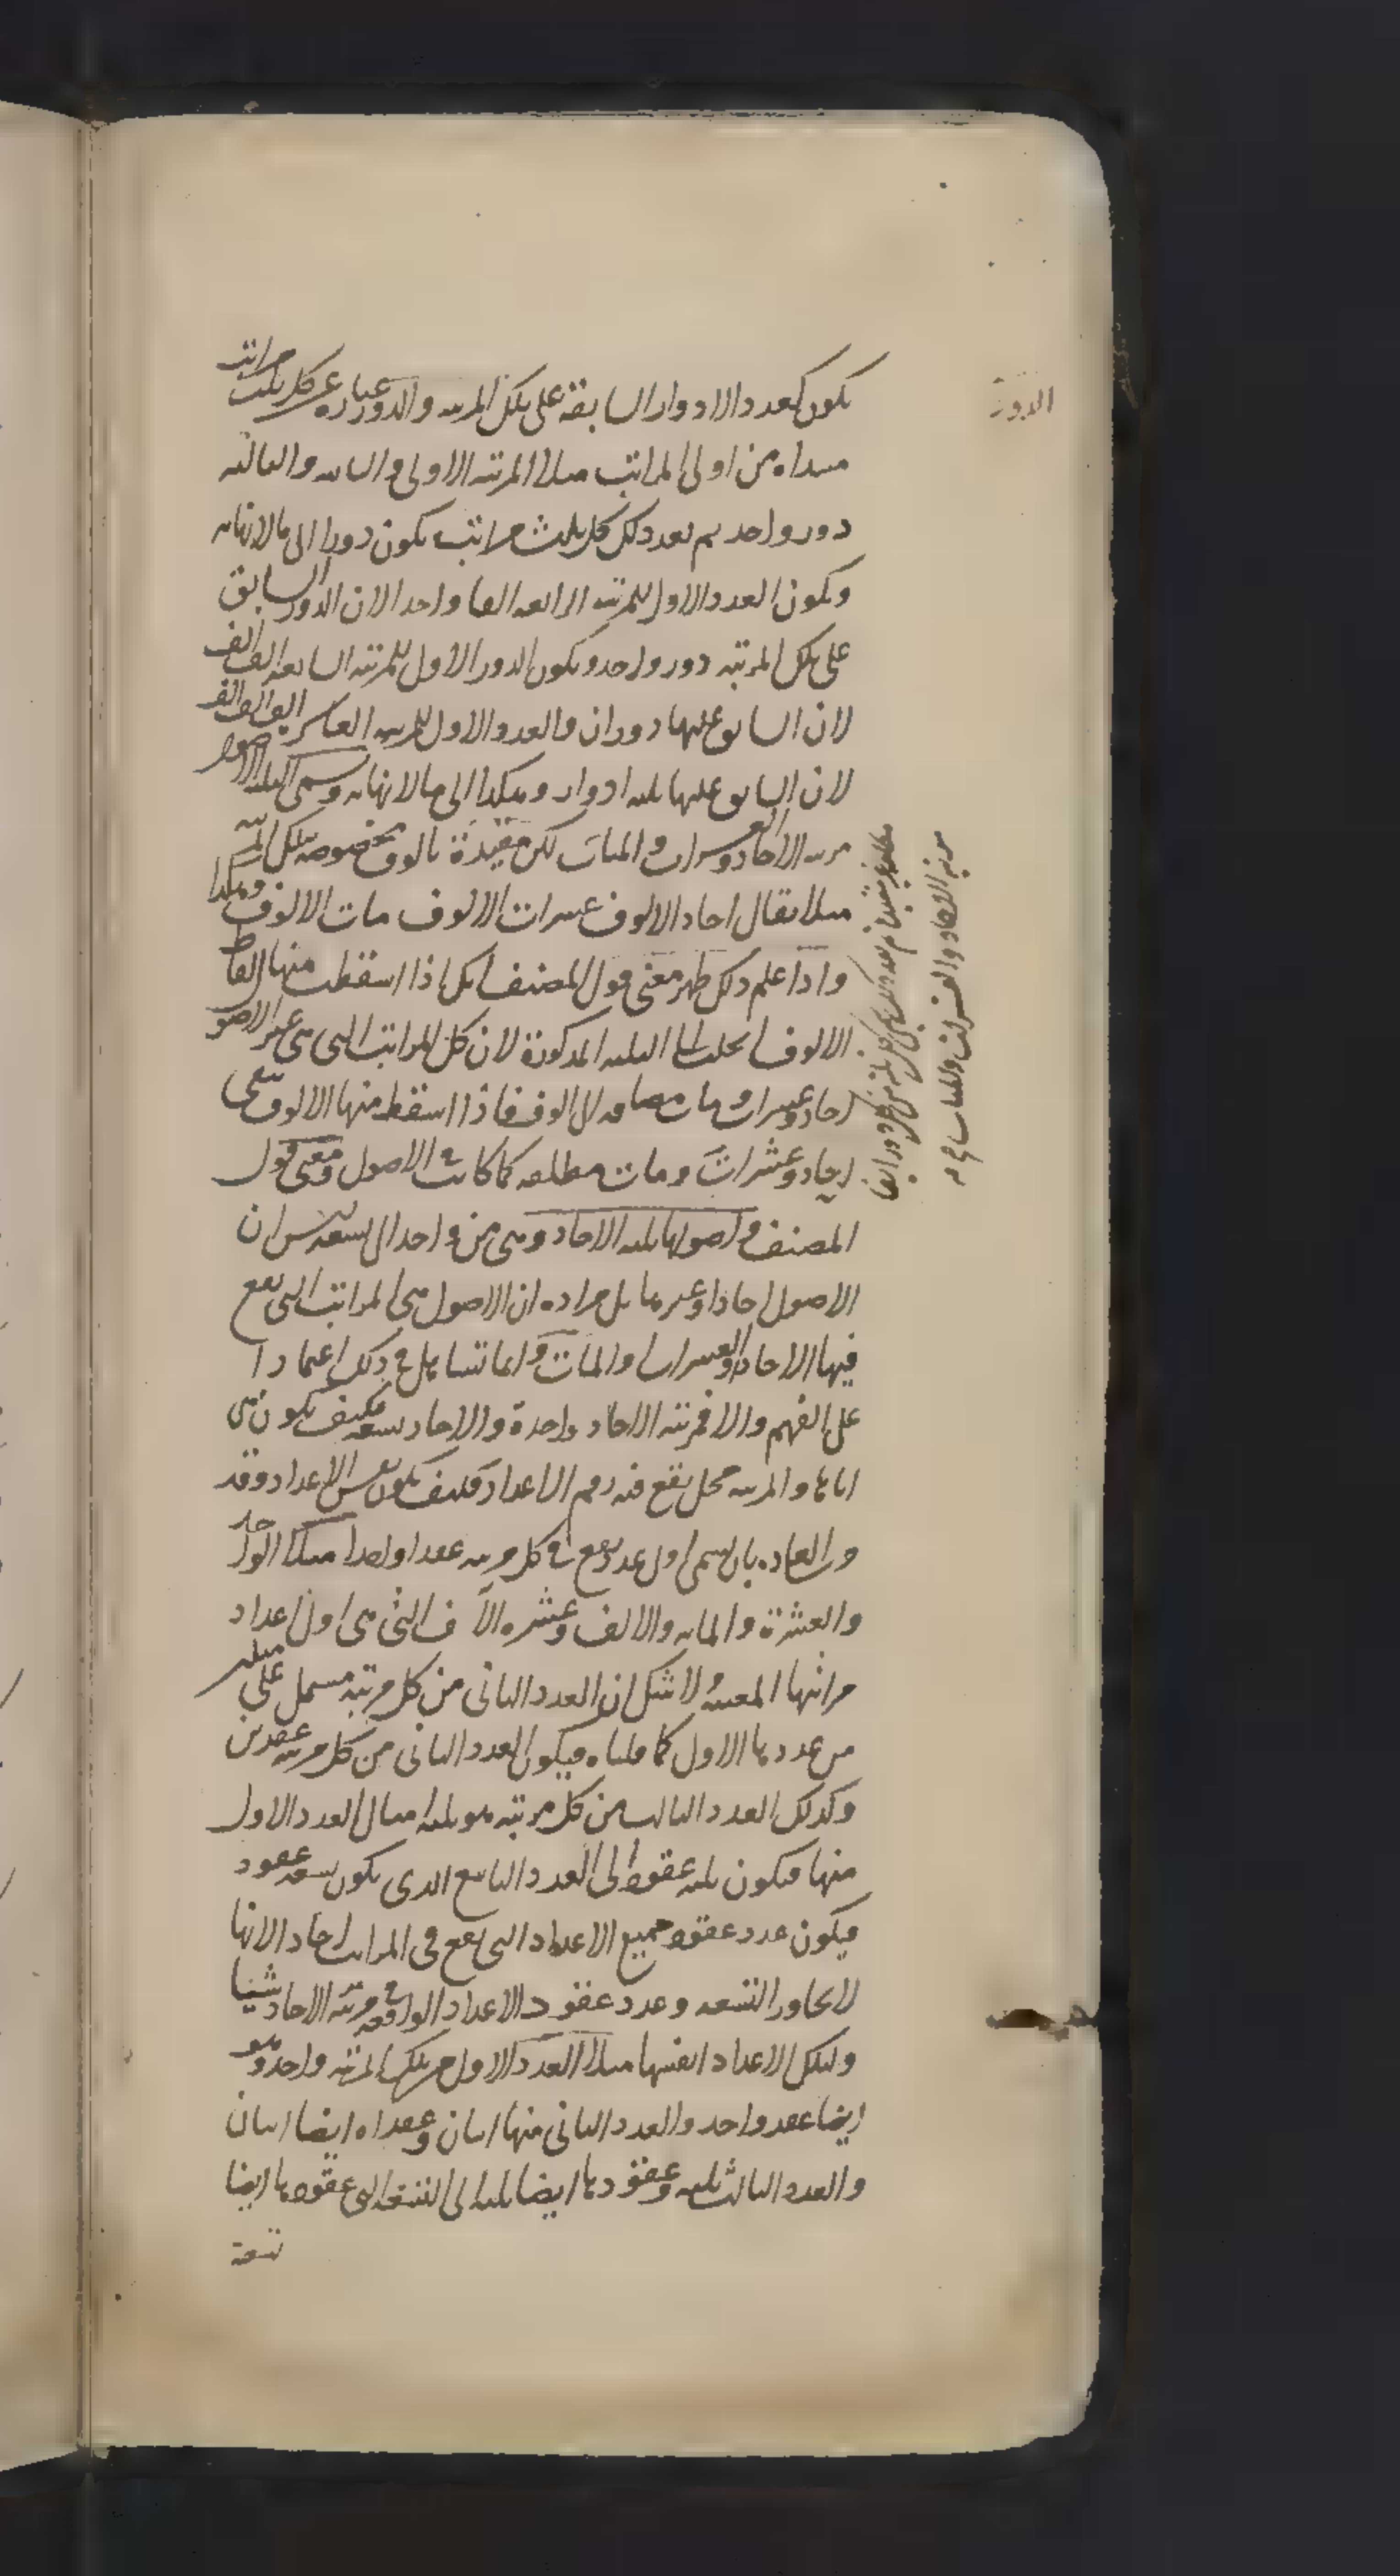 يكون كعدد الادوار السابقة على تلك المرتبه والدور عباره عن كل ثلث مراتب
مبداه من اولى المراتب مثلا المرتبه الاولى والثانيه والثالثه
دور واحد ثم بعد ذلك كل ثلث مراتب يكون دورا الى ما لا نهايه
ويكون العدد الاول للمرتبه الرابعه الفا واحدا لان الدور السابق
على تلك المرتبه دور واحد ويكون الدور الاول للمرتبه السابعه الف الف
لان السابق عليها دوران والعدد الاول للمرتبه العاشره الف الف الف
لان السابق عليها ثلثه ادوار وهكذا الى ما لا نهايه وسمى الثلثه الاصول
مرتبه الاحاد والعشرات والمئات لكن مقيدة بالوف مخصوصه بتلك المرتبه
مثلا يقال احاد الالوف عشرات الالوف مات الالوف وهكذا
واذا علم ذلك ظهر معنى قول المصنف انك اذا اسقطت منها الفاظ
الالوف انحلت الى الثلثه المذكورة لان كل المراتب التى هى غير الاصول
احاد وعشرات ومات مضافه الى الوف فاذا اسقط منها الالوف بقى
احاد وعشرات ومات مطلقه كما كانت فى الاصول ومعنى قول
المصنف واصولها ثلثه الاحاد وهى من واحد الى تسعه ليس ان
الاصول احادا وغيرها بل مراده ان الاصول هى المراتب التى يقع
فيها الاحاد والعشرات والمات وانما تساهل فى ذلك اعتمادا
على الفهم والا فمرتبه الاحاد واحدة والاحاد تسعه فكيف يكون هى
اياها والمرتبه محل يقع فيه رقم الاعداد فكيف يكون نفس الاعداد وقد
جرت العاده بان يسمى اول عدد يقع فى كل مرتبه عقدا واحدا مثلا الواحد
والعشرة والمايه والالف وعشره الاف التى هى اول اعداد
مراتبها المعينه ولا شك ان العدد الثانى من كل مرتبه مشتمل على مثلين
من عددها الاول كما قلناه فيكون العدد الثانى من كل مرتبه عقدين
وكذلك العدد الثالث من كل مرتبه هو ثلثه امثال العدد الاول
منها فيكون ثلثه عقود الى العدد التاسع الذى يكون تسعه عقود
فيكون عدد عقود جميع الاعداد التى يقع فى المراتب احاد الانها
لا يتجاوز التسعه وعدد عقود الاعداد الواقعه فى مرتبه الاحاد شيئا
ولتلك الاعداد انفسها مثلا العدد الاول من تلك المرتبه واحد وهو
ايضا عقد واحد والعدد الثانى منها اثنان وعقداه ايضا اثنان
والعدد الثالث ثلثه وعقودها ايضا ثلثه الى التسعه التى عقودها ايضا
تسعة
الدورة
مرتبه الاحاد والعشرات والمئات